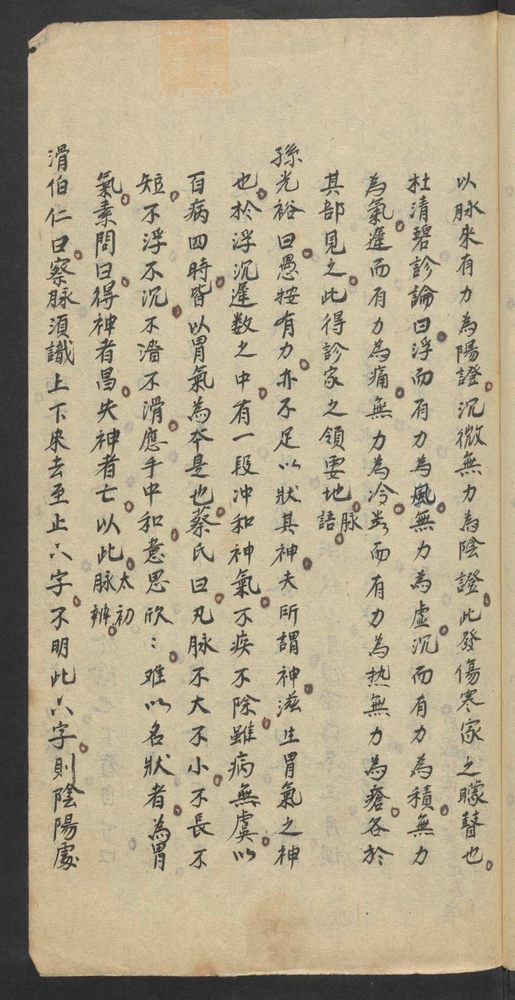 以脉来有力為陽證沉微無力為陰證此發傷寒家之矇瞽也
杜清碧診論曰浮而有力為風無力為虛沉而有力為積無力
為氣遲而有力為痛無力為冷数而有力為热無力為瘡各於
其部見之此得診家之領要地脉語
孫光裕曰愚按有力亦不足以狀其神夫所謂神滋生胃氣之神
也於浮沉遲数之中有一段冲和神氣不疾不除雖病無虞以
百病四時皆以胃氣為夲是也蔡氏曰凡脉不大不小不長不
短不浮不沉不濇不滑應手中和意思欣:难以名狀者為胃
氣素問曰得神者昌失神者亡以此脉太初辨
滑伯仁曰察脉須識上下来去至止六字不明此六字則陰陽䖏